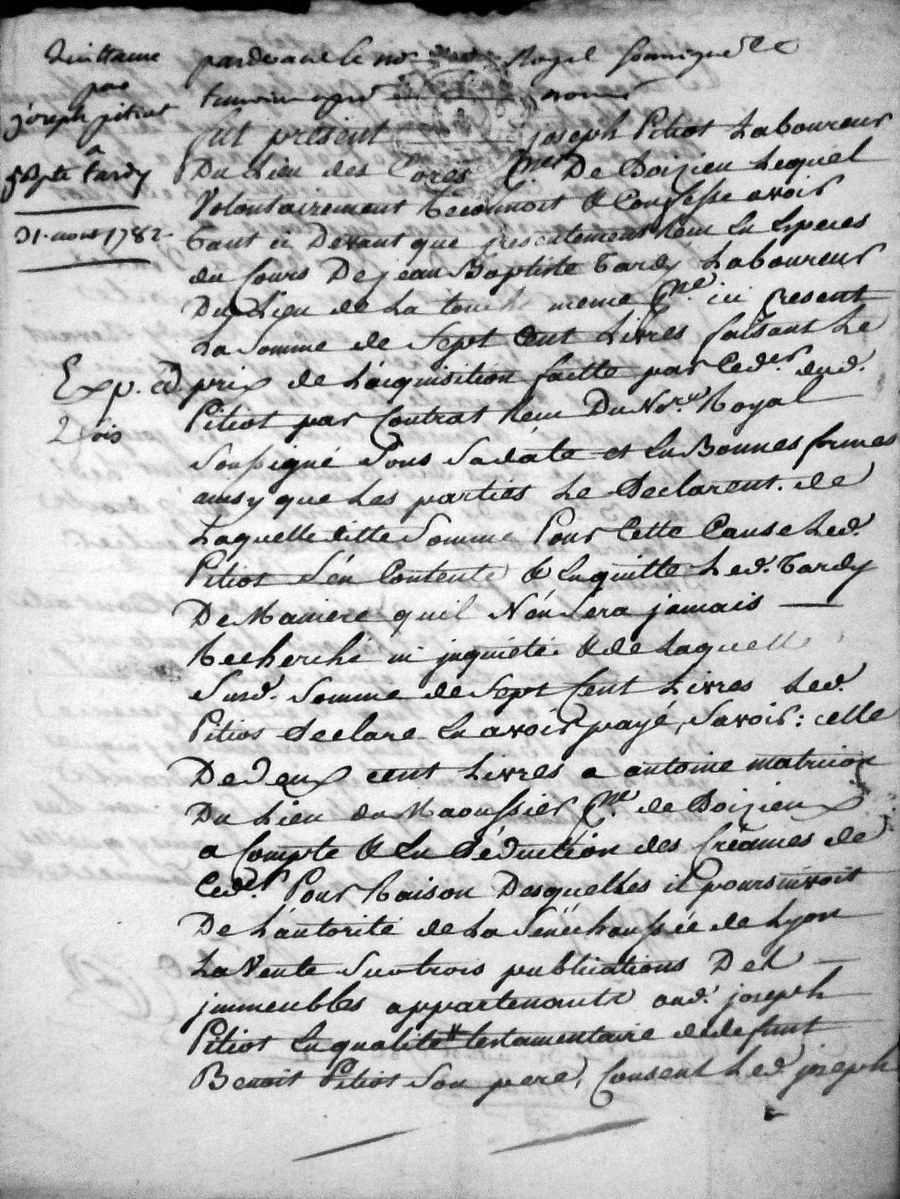 Quittance
par
joseph pitiot
a
J Bpte tardy
31. aout 1782.
Exp. ed.
2 fois
pardevant le no.re Royal soussigné &
temoins apres nommés
fut present joseph Pitiot Laboureur
Du Lieu des Cores P.sse De Doizieu Lequel
Volontairement Reconnoit & Confesse avoir
tant ci Devant que presentement Reçu En Especes
du Cours De jean Baptiste tardy Laboureur
Du Lieu de La touche meme P.sse ici present
La Somme de Sept Cent Livres faisant Le
prix de L'acquisition faitte par Ced.er dud.
Pitiot par Contrat Reçu Du No.re Royal
Soussigné Sous Sa date et En Bonnes formes
ainsy que Les parties Le Declarent. de
Laquelle ditte Somme Pour Cette Cause Led.
Pitiot S'en Contente & En quitte Led. tardy
De Maniere qu'il N'en Sera jamais
Recherché ni jnquieté & de Laquelle
Susd. Somme de Sept Cent Livres Led.
Pitiot declare En avoir payé, Savoir: celle
De deux cent Livres a antoine matricon
Du Lieu du Maoussier P.sse de Doizieu
a Compte & En déduction des Créances de
Ced.er Pour Raison Desquelles il poursuivoit
De L'autorité de La Sénéchaussée de Lyon
La Vente Sur trois publications Des
jmmeubles appartenants aud. joseph
Pitiot En qualité testamentaire de defunt
Benoit Pitiot Son pere, Consent Led. joseph